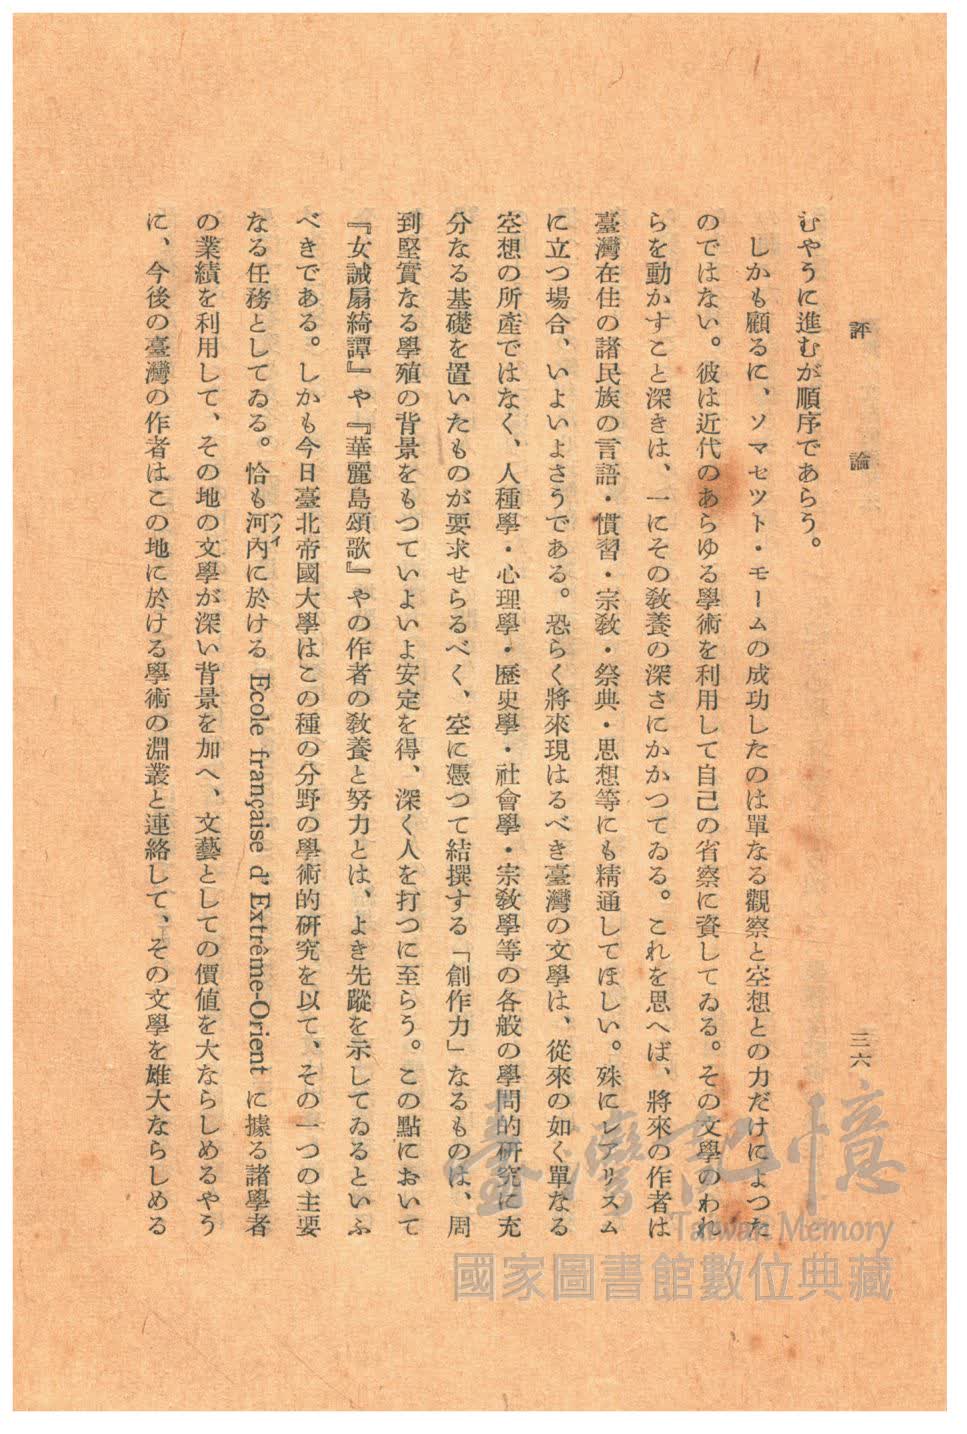 評論
三六
むやうに進むが順序であらう。
しかも顧るに、ソマセツト・モームの成功したのは單なる觀察と空想との力だけによつた
のではない。彼は近代のあらゆる學術を利用して自己の省察に資してゐる。その文學のわれ
らを動かすこと深きは、一にその敎養の深さにかかつてゐる。これを思へば、將來の作者は
臺灣在住の諸民族の言語・慣習・宗敎・祭典・思想等にも精通してほしい。殊にレアリスム
に立つ場合、いよいよさうである。恐らく將來現はるべき臺灣の文學は、從來の如く單なる
空想の所產ではなく、人種學・心理學・歷史學・社會學・宗敎學等の各般の學問的硏究に充
分なる基礎を置いたものが要求せらるべく、空に憑つて結撰する「創作力」なるものは、周
到堅實なる學殖の背景をもつていよいよ安定を得、深く人を打つに至らう。この點において
『女誡扇綺譚』や『華麗島頌歌』やの作者の敎養と努力とは、よき先蹤を示してゐるといふ
べきである。しかも今日臺北帝國大學はこの種の分野の學術的硏究を以て、その一つの主要
なる任務としてゐる。恰も河內に於ける Ecole française d'Extrême-Orient に據る諸學者
ハノイ
の業績を利用して、その地の文學が深い背景を加へ、文藝としての價値を大ならしめるやう
に、今後の臺灣の作者はこの地に於ける學術の淵叢と連絡して、その文學を雄大ならしめる
臺灣記憶
Taiwan Memory
國家圖書館數位典藏